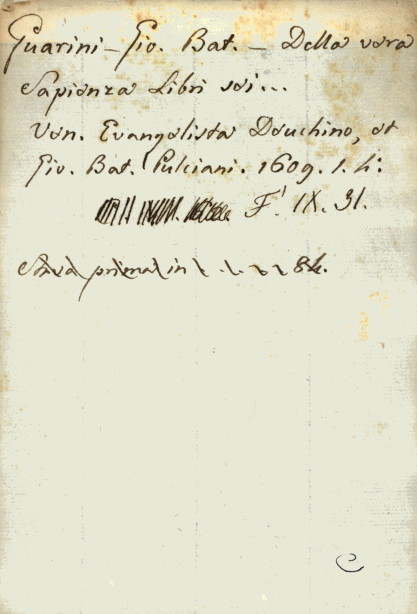 Guarini – Gio. Bat. – Della vera
Sapienza Libri sei...
Ven. Evangelista Deuchino, et
Gio. Bat. Pulciani. 1609. 1. 4:
F'. IX. 31.
primo in 84.
e